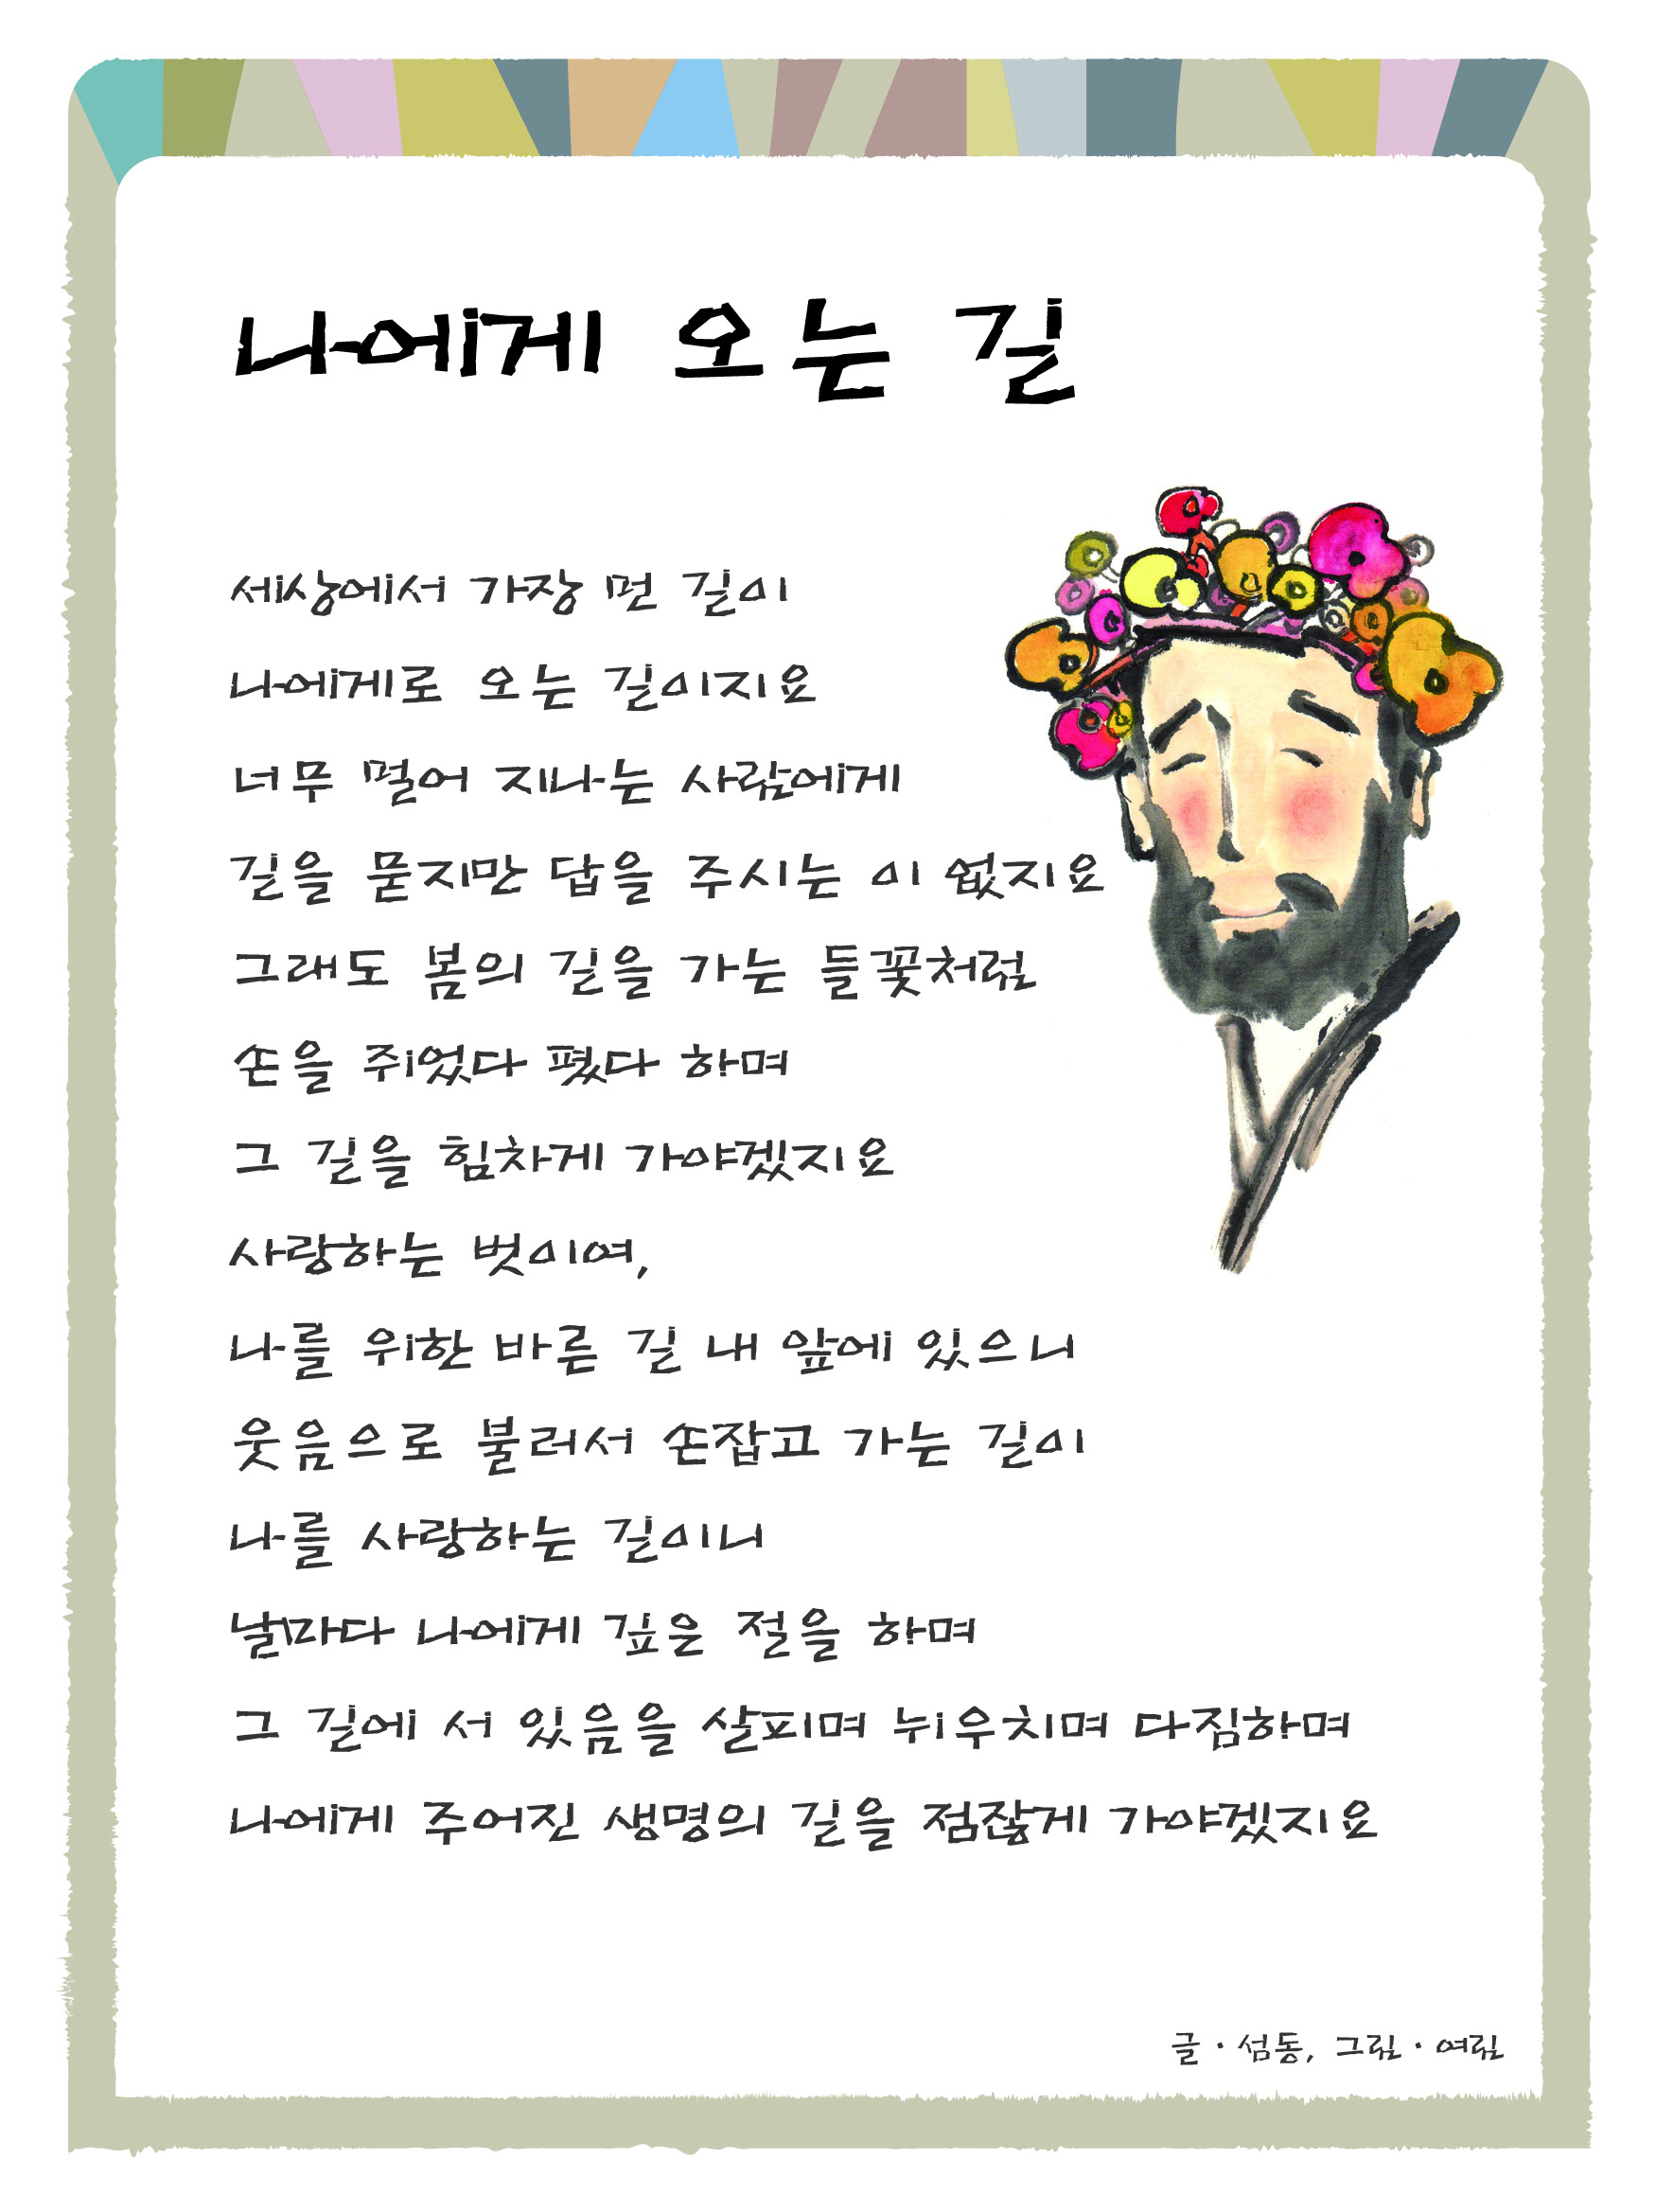 나에게 오는 길
세상에서 가장 먼 길이
나에게로 오는 길이지요
너무 멀어 지나는 사람에게
길을 묻지만 답을 주시는 이 없지요
그래도 봄의 길을 가는 들꽃처럼
손을 쥐었다 폈다 하며
그 길을 힘차게 가야겠지요
사랑하는 벗이여,
나를 위한 바른 길 내 앞에 있으니
웃음으로 불러서 손잡고 가는 길이
나를 사랑하는 길이니
날마다 나에게 깊은 절을 하며
그 길에 서 있음을 살피며 뉘우치며 다짐하며
나에게 주어진 생명의 길을 점잖게 가야겠지요
글 · 섬동, 그림 · 여림